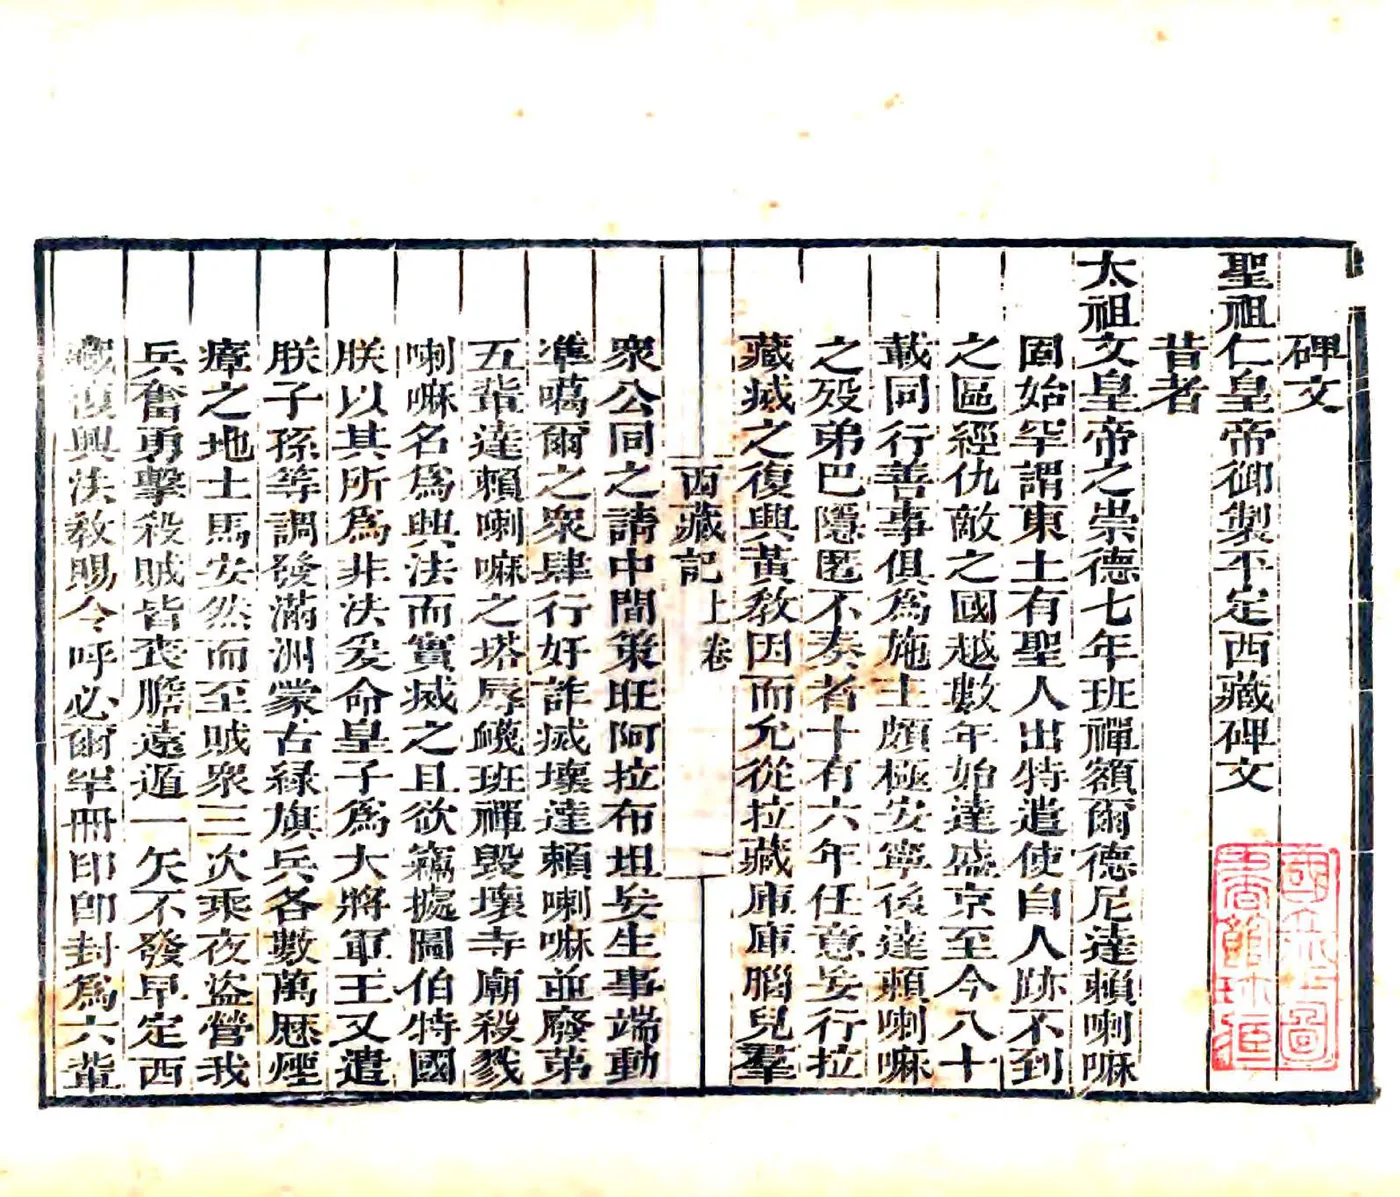 碑文
聖祖仁皇帝御製平定西藏碑文
昔者
太祖文皇帝之崇德七年班禪額爾德尼達賴喇嘛
固始罕謂東土有聖人出特遣使自人跡不到
之區經仇敵之國越數年始達盛京至今八十
載同行善事俱為施主頗極安寧後達賴喇嘛
之歿弟巴隱匿不奏者十有六年任意妄行拉
藏滅之復興黃教因而允從拉藏庫庫腦兒羣
西藏記 上卷 一
眾公同之請中間策旺阿拉布坦妄生事端動
準噶爾之眾肆行奸詐滅壞達賴喇嘛並廢第
五輩達賴喇嘛之塔辱衊班禪毀壞寺廟殺戮
喇嘛名為興法而實滅之且欲竊據圖伯特國
朕以其所為非法爰命皇子為大將軍王又遣
朕子孫等調發滿洲蒙古綠旗兵各數萬歷煙
瘴之地士馬安然而至賊眾三次乘夜盜營我
兵奮勇擊殺賊皆丧膽遠遁一矢不發早定西
藏復興法教賜今呼必爾罕冊印封為六輩